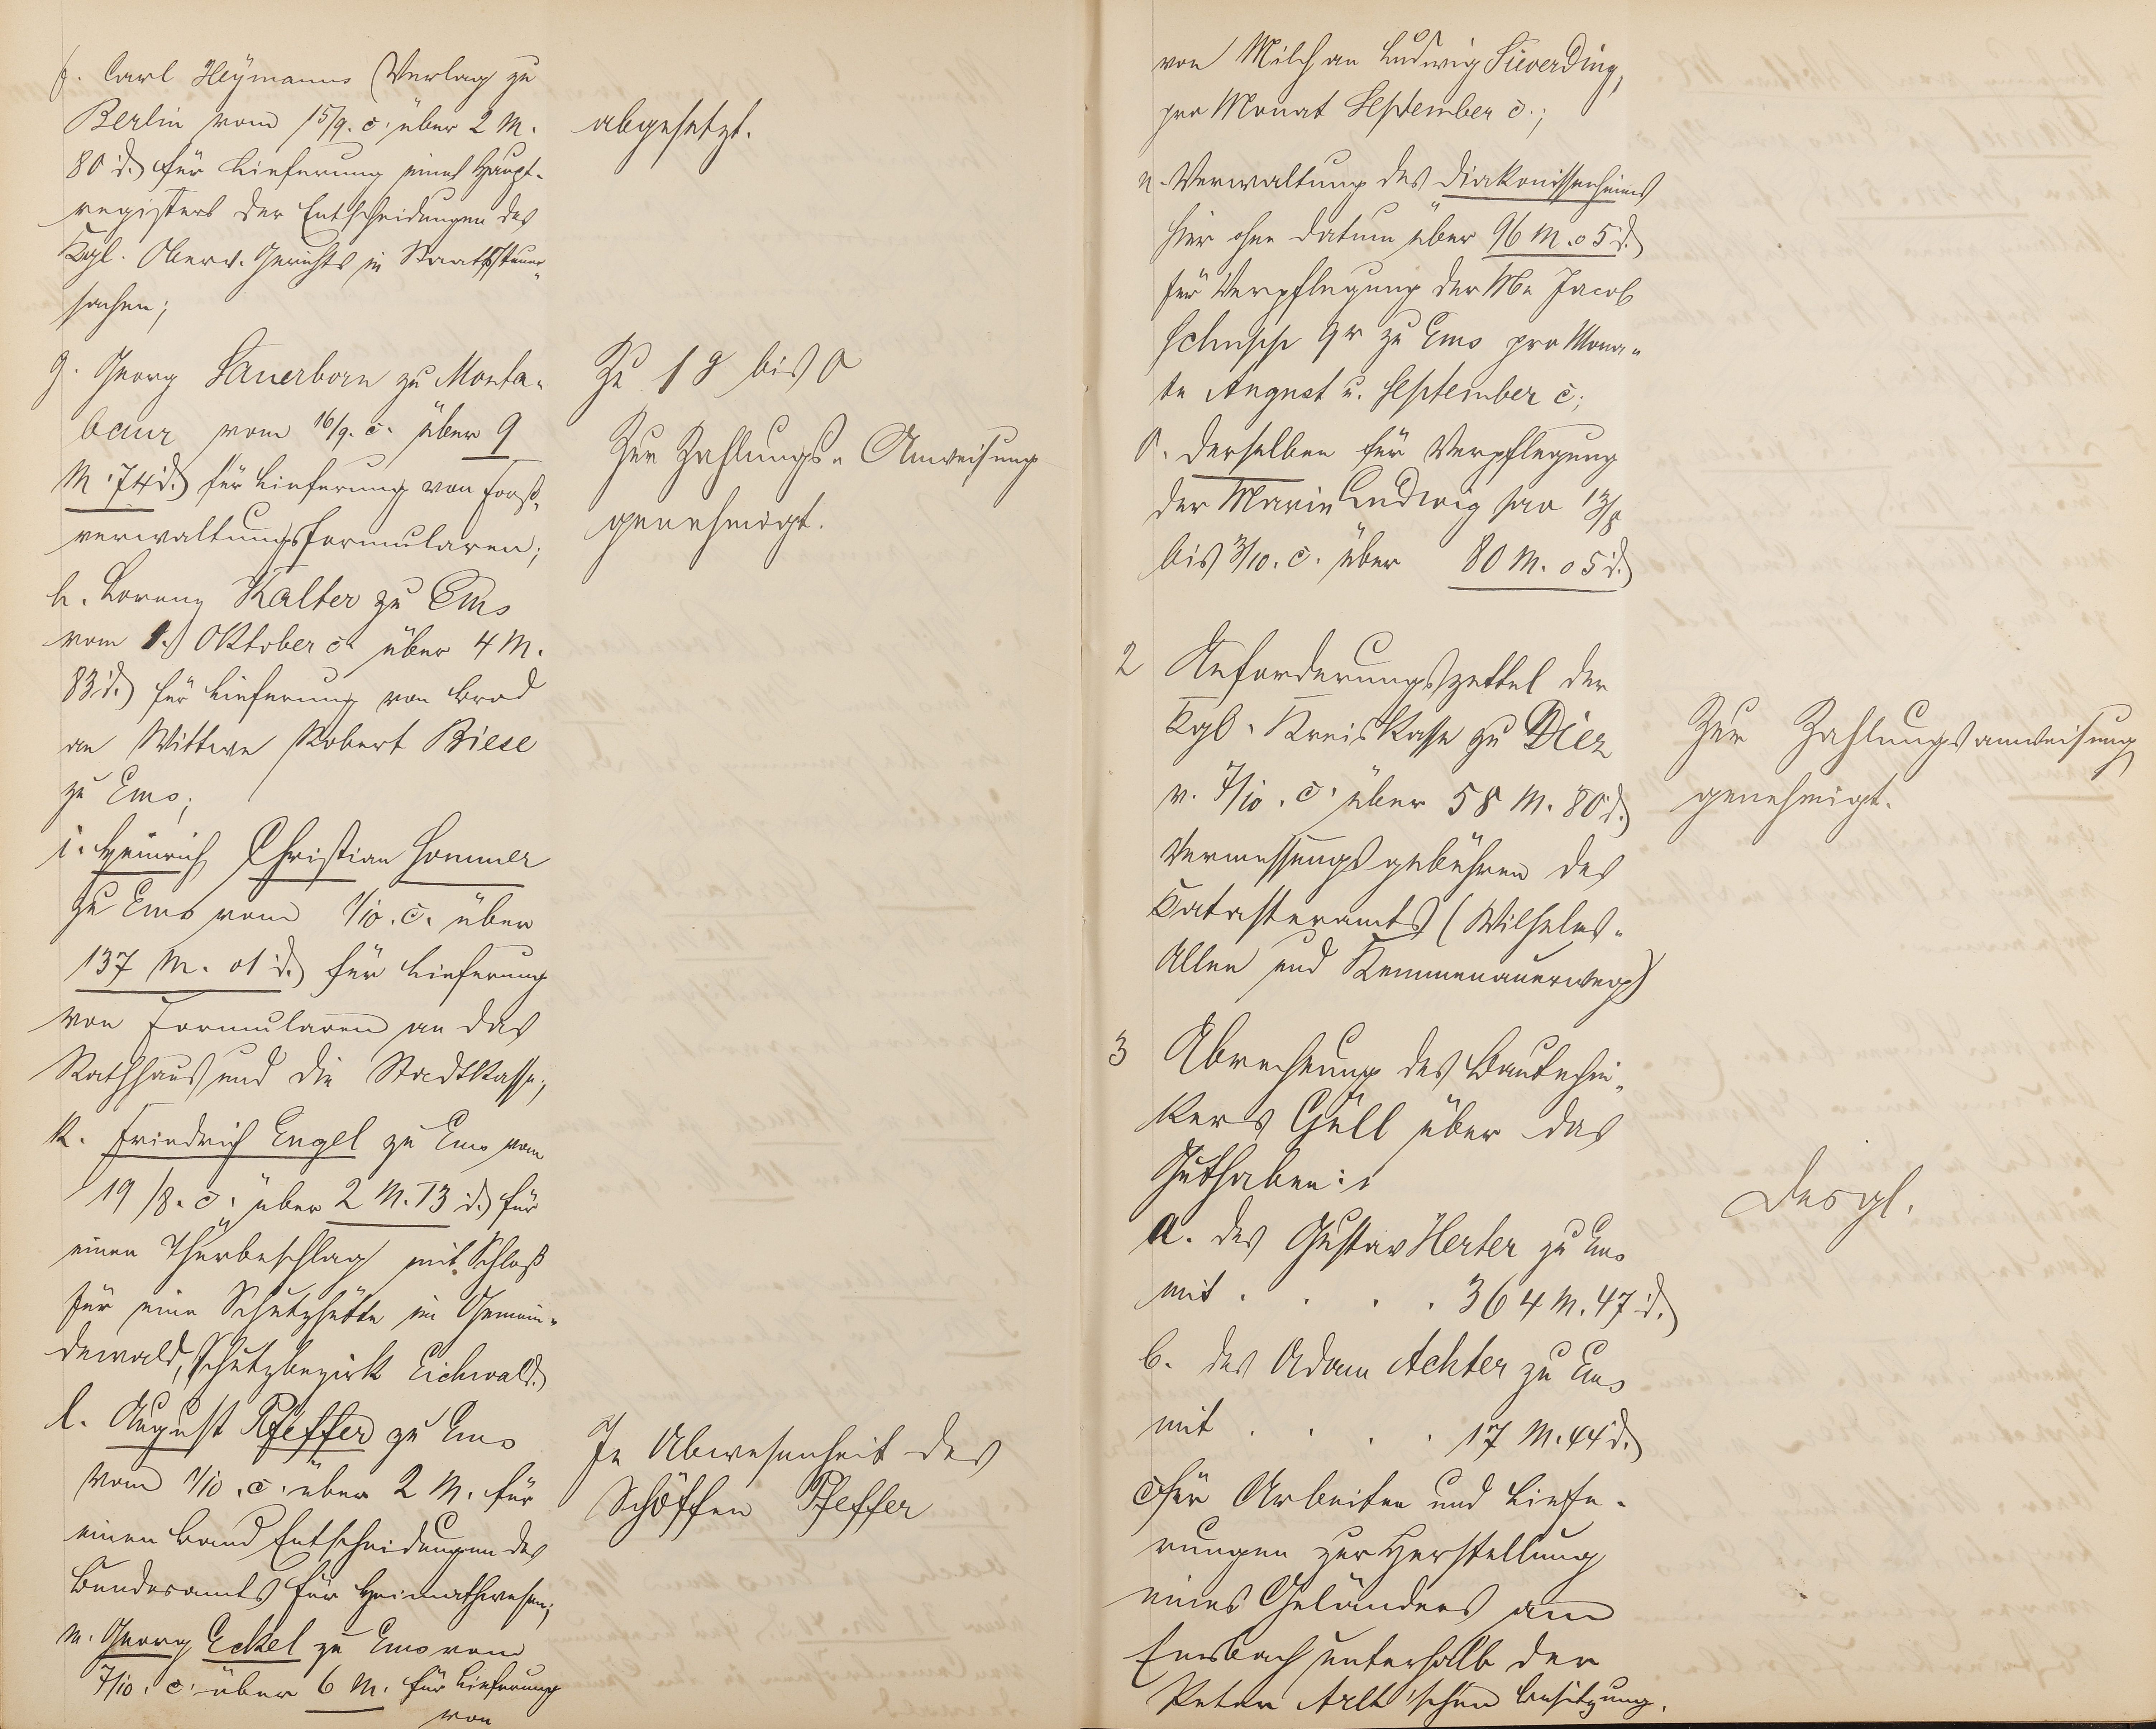 f. Carl Heymanns Verlag zu
Berlin vom 15/9. c. über 2 M.
80 d. für Lieferung eines Haupt-
registers der Entscheidungen des
Kgl. Oberv. Gerichts in Staatssteuer-
sachen;
abgesetzt.
g. Georg Sauerborn zu Monta-
baur vom 16/9. c. über 9
M. 74 d. für Lieferung von Forst-
verwaltungsformularen;
Zu 1 g bis o
Zur Zahlungs-Anweisung
genehmigt.
h. Lorenz Kalter zu Ems
vom 1. Oktober c. über 4 M.
83 d. für Lieferung von Brod
an Wittwe Robert Biese
zu Ems;
i. Heinrich Christian Sommer
zu Ems vom 1/10. c. über
137 M. 01 d. für Lieferung
von Formularen an das
Rathhaus und die Stadtkasse;
k. Friedrich Engel zu Ems vom
19/8. c. über 2 M. 73 d. für
einen Thürbeschlag mit Schloß
für eine Schutzhütte im Gemein-
dewald, Schutzbezirk Eichwald.
l. August Pfeffer zu Ems
vom 1/10. c. über 2 M. für
einen Band Entscheidungen des
Bundesamts für Heimathwesen;
In Abwesenheit des
Schöffen Pfeffer
m. Georg Eckel zu Ems vom
7/10. c. über 6 M. für Lieferung
von
von Milch an Ludwig Sieverding,
pro Monat September c.;
n. Verwaltung des Diakonissenheims
hier ohne Datum über 96 M. 05 d.
für Verpflegung der Jacob
zu Ems pro Mona-
te August u. September c;
o. Derselben für Verpflegung
der Marie Ludwig pro
bis 3/10. c. über 80 M. 05 d.
2 Anforderungszettel der
Kgl. Kreiskasse zu Diez
v. 7/10. c. über 58 M. 80 d.
Vermessungsgebühren des
Katasteramts (Wilhelms-
Allee und Kemmenauerweg)
Zur Zahlungsanweisung
genehmigt.
3 Abrechnung des Bautechni-
kers Güll über das
Guthaben:
a. des Gustav Herter zu Ems
mit . . . . 364 M. 47 d.
b. des Adam Achter zu Ems
mit . . . . 17 M. 44 d.
für Arbeiten und Liefe-
rungen zur Herstellung
eines Geländers am
Emsbach unterhalb der
Peter Arlt'schen Besitzung.
Desgl.